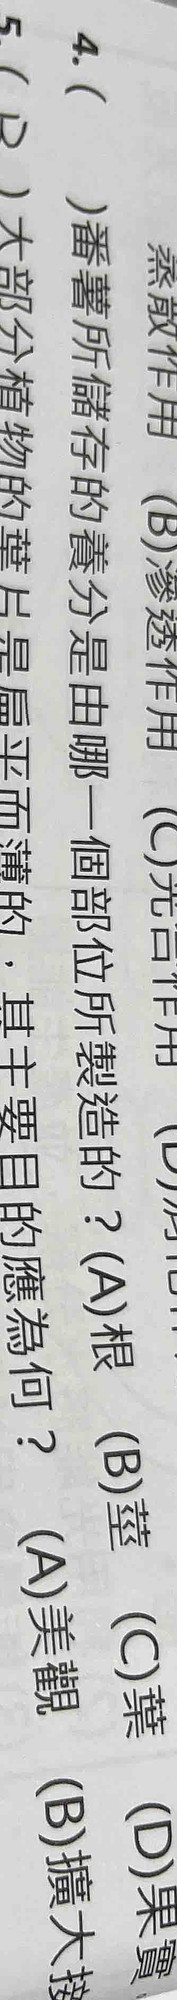 蒸散作用 (B)滲透作用 (C)光合作用 (D)
4. ( )番薯所儲存的養分是由哪一個部位所製造的？(A)根 (B)莖 (C)葉 (D)果實
5. ( B )大部分植物的葉片是扁平而薄的，其主要目的應為何？ (A)美觀 (B)擴大接